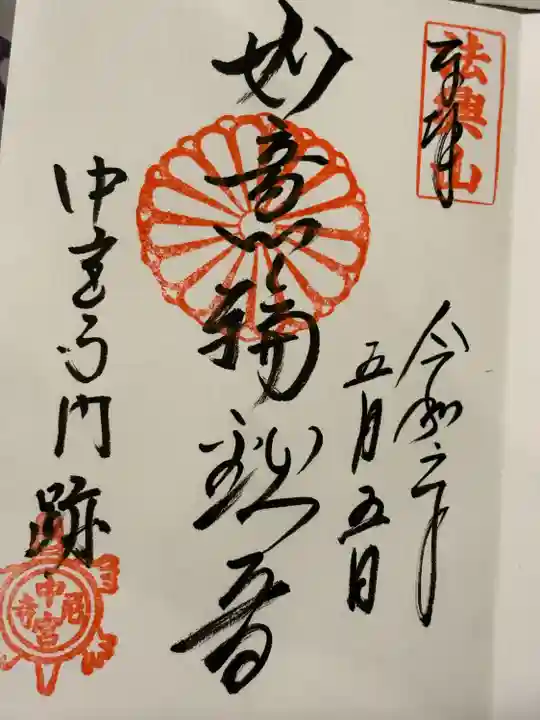 法興山
奉拝
令和六年
五月五日
如意輪観音
中宮寺門跡
中宮尼寺